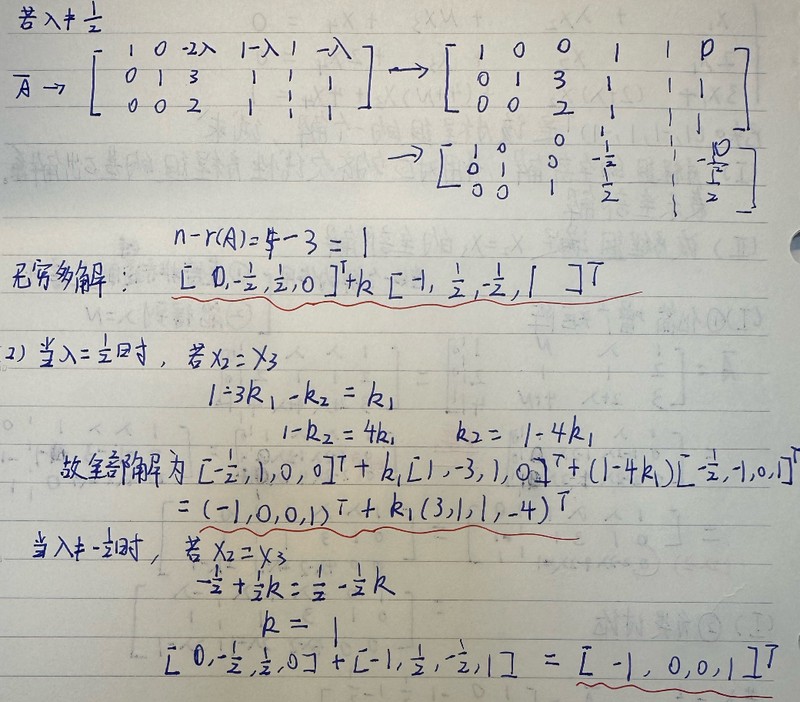 若λ≠1/2
Ā → [ 1 0 -2λ 1-λ | -λ ] → [ 1 0 0 1 | 0 ]
[ 0 1 3 1 | 1 ] [ 0 1 3 1 | 1 ]
[ 0 0 2 1 | 1 ] [ 0 0 2 1 | 1 ]
→ [ 1 0 0 | ]
[ 0 1 0 -1/2 | -1/2 ]
[ 0 0 1 1/2 | 1/2 ]
n-r(A)=4-3=1
无穷多解: [0,-1/2,1/2,0]ᵀ+k[-1,1/2,-1/2,1]ᵀ
2) 当λ=1/2时, 若x₂=x₃
1-3k₁-k₂=k₁
1-k₂=4k₁ k₂=1-4k₁
故全部解为[-1/2,1,0,0]ᵀ+k₁[1,-3,1,0]ᵀ+(1-4k₁)[-1/2,-1,0,1]ᵀ
=(-1,0,0,1)ᵀ+k₁(3,1,1,-4)ᵀ
当λ≠-1/2时, 若x₂=x₃
-1/2+1/2k=1/2-1/2k
k=1
[0,-1/2,1/2,0]+[-1,1/2,-1/2,1]=[-1,0,0,1]ᵀ